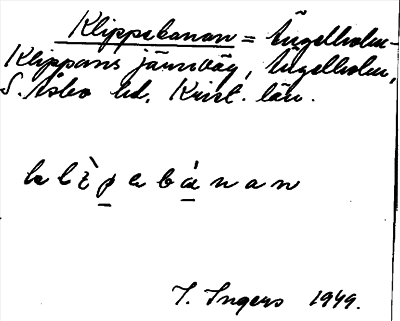 Klippabanan = Ängelholm-
Klippans järnväg, Ängelholm,
S. Åsbo hd, Krist. län.
klìpabánan
I. Ingers 1949.